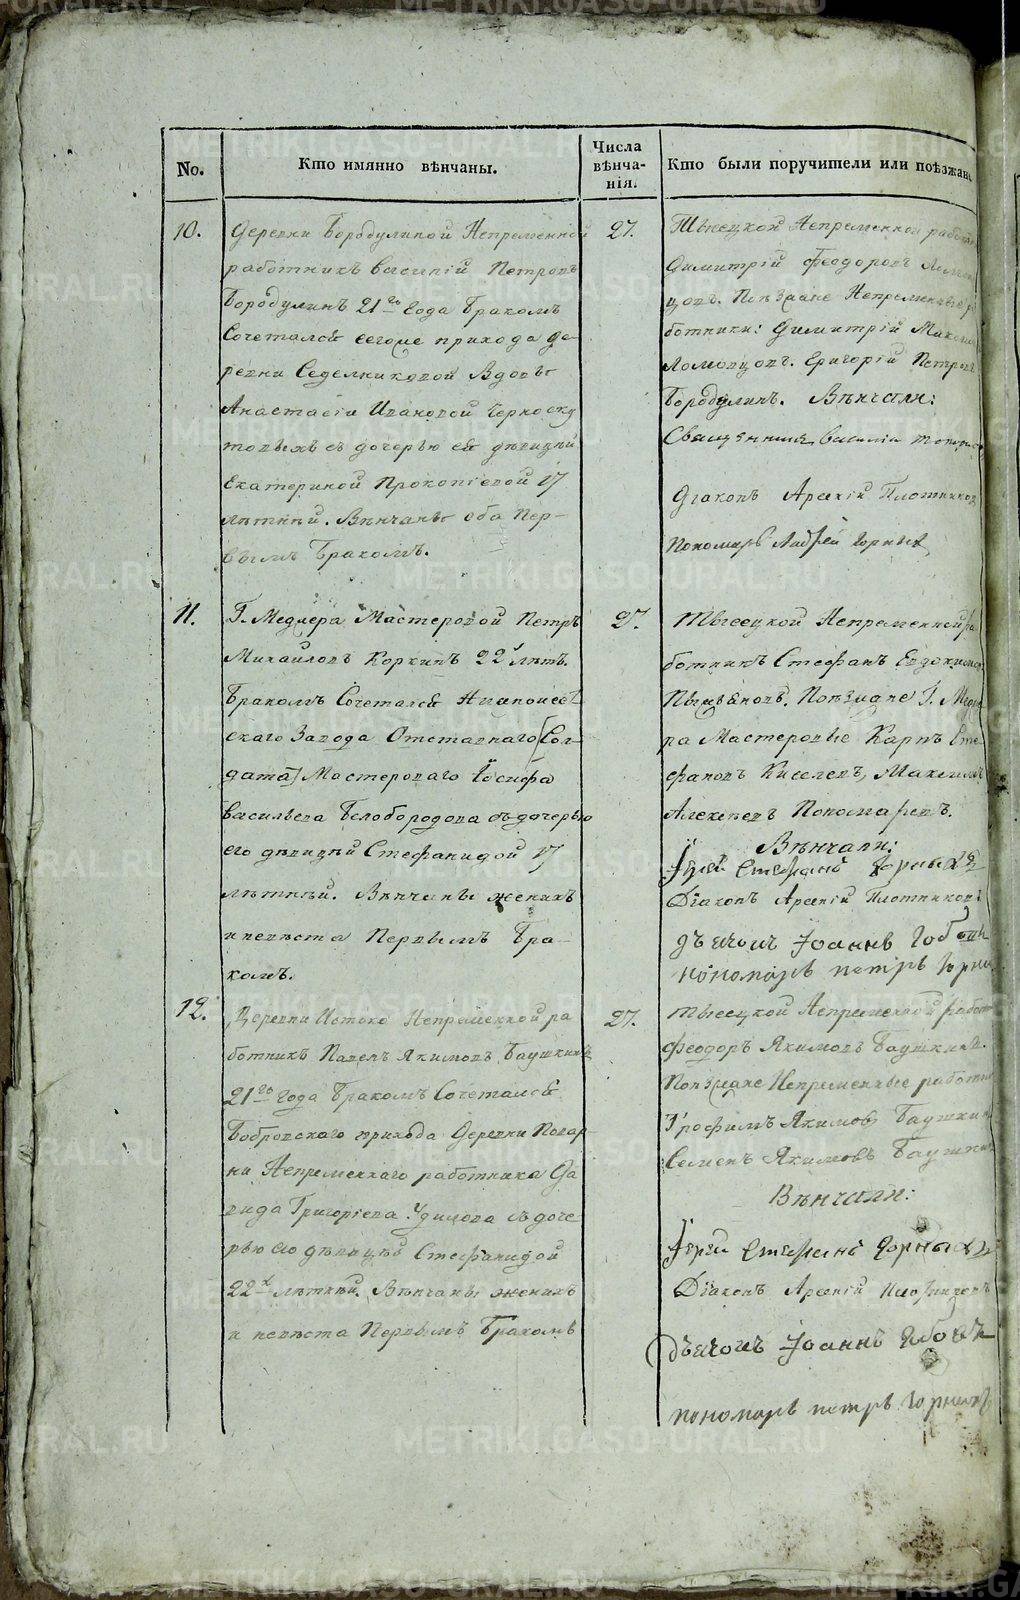 No.
Кто имянно вѣнчаны.
Числа
вѣнча-
нія.
Кто были поручители или поѣзжан
10.
Деревни Бородулиной Непременной
работникъ Василій Петровъ
Бородулинъ 21го года Бракомъ
Сочетался сегоже прихода де-
ревни Седелниковой Вдовы
Анастасіи Ивановой Черноску
товыхъ съ дочерью ея дѣвицей
Екатериной Прокопіевой 17
лѣтней. Вѣнчаны оба Пер-
вымъ Бракомъ.
27.
Непременной работн
Димитрій Феодоровъ Ломов
цовъ. Поѣзжане Непременные р
ботники: Димитрій Максимов
Ломовцовъ. Григорій Петровъ
Бородулинъ. Вѣнчали:
Священникъ Василій
Діаконъ Арсеній Плотников
Пономарь Андрей Горныхъ
11.
Г. Меджера Мастеровой Петръ
Михайловъ Коркинъ 22 лѣтъ.
Бракомъ Сочетался
скаго Завода Отставнаго (Сол-
дата) Мастероваго Іосифа
Васильева Белобородова съ дочерью
его дѣвицей Стефанидой 17
лѣтней. Вѣнчаны женихъ
и невѣста Первымъ Бра-
комъ.
27.
Непременной ра
ботникъ Стефанъ Евдокимов
Поѣзжане Г. Медже
ра Мастеровые Карпъ Сте-
фановъ Киселевъ, Максимъ
Алексеевъ Пономаревъ.
Вѣнчали:
Іерей Стефанъ Горныхъ
Діаконъ Арсеній Плотниковъ
дьячокъ Іоаннъ
пономарь петръ Горных
12.
Деревни Истока Непременной ра
ботникъ Павелъ Якимовъ Баушкинъ
21го года Бракомъ Сочетался
Бобровскаго прихода Деревни Повар-
ни Непременнаго работника Да
вида Григоріева съ доче-
рью его дѣвицей Стефанидой
22х лѣтней. Вѣнчаны женихъ
и невѣста Первымъ Бракомъ
27.
Непременной работн
Феодоръ Якимовъ Баушкинъ.
Поѣзжане Непременные работн
Трофимъ Якимовъ Баушкин
Семенъ Якимовъ Баушкин
Вѣнчали:
Іерей Стефанъ Горныхъ
Діаконъ Арсеній Плотниковъ
дьячокъ Іоаннъ
пономарь петръ Горныхъ
METRIKI.GASO-URAL.RU